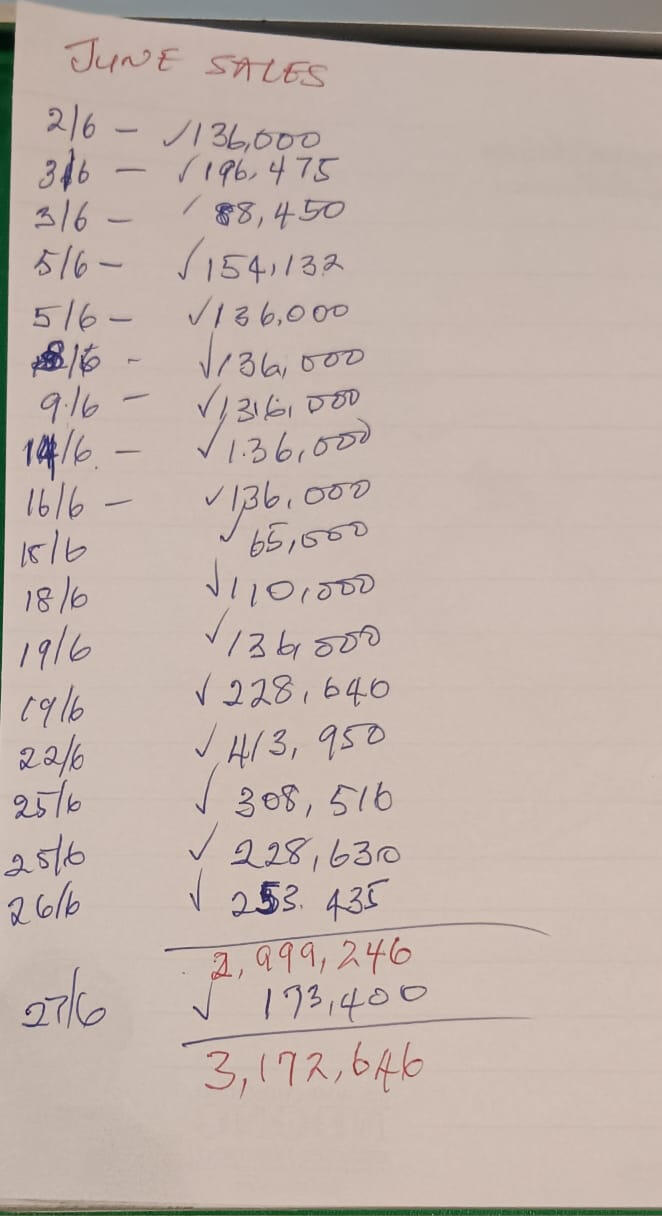 JUNE SALES
2/6 - ✓136,000
3/6 - ✓196,475
3/6 - ✓88,450
5/6 - ✓154,132
5/6 - ✓136,000
8/6 - ✓136,000
9/6 - ✓136,000
14/6 - ✓136,000
16/6 - ✓136,000
18/6 ✓65,000
18/6 ✓110,000
19/6 ✓136,000
19/6 ✓228,640
22/6 ✓413,950
25/6 ✓308,516
25/6 ✓228,630
26/6 ✓253.435
2,999,246
27/6 ✓173,400
3,172,646